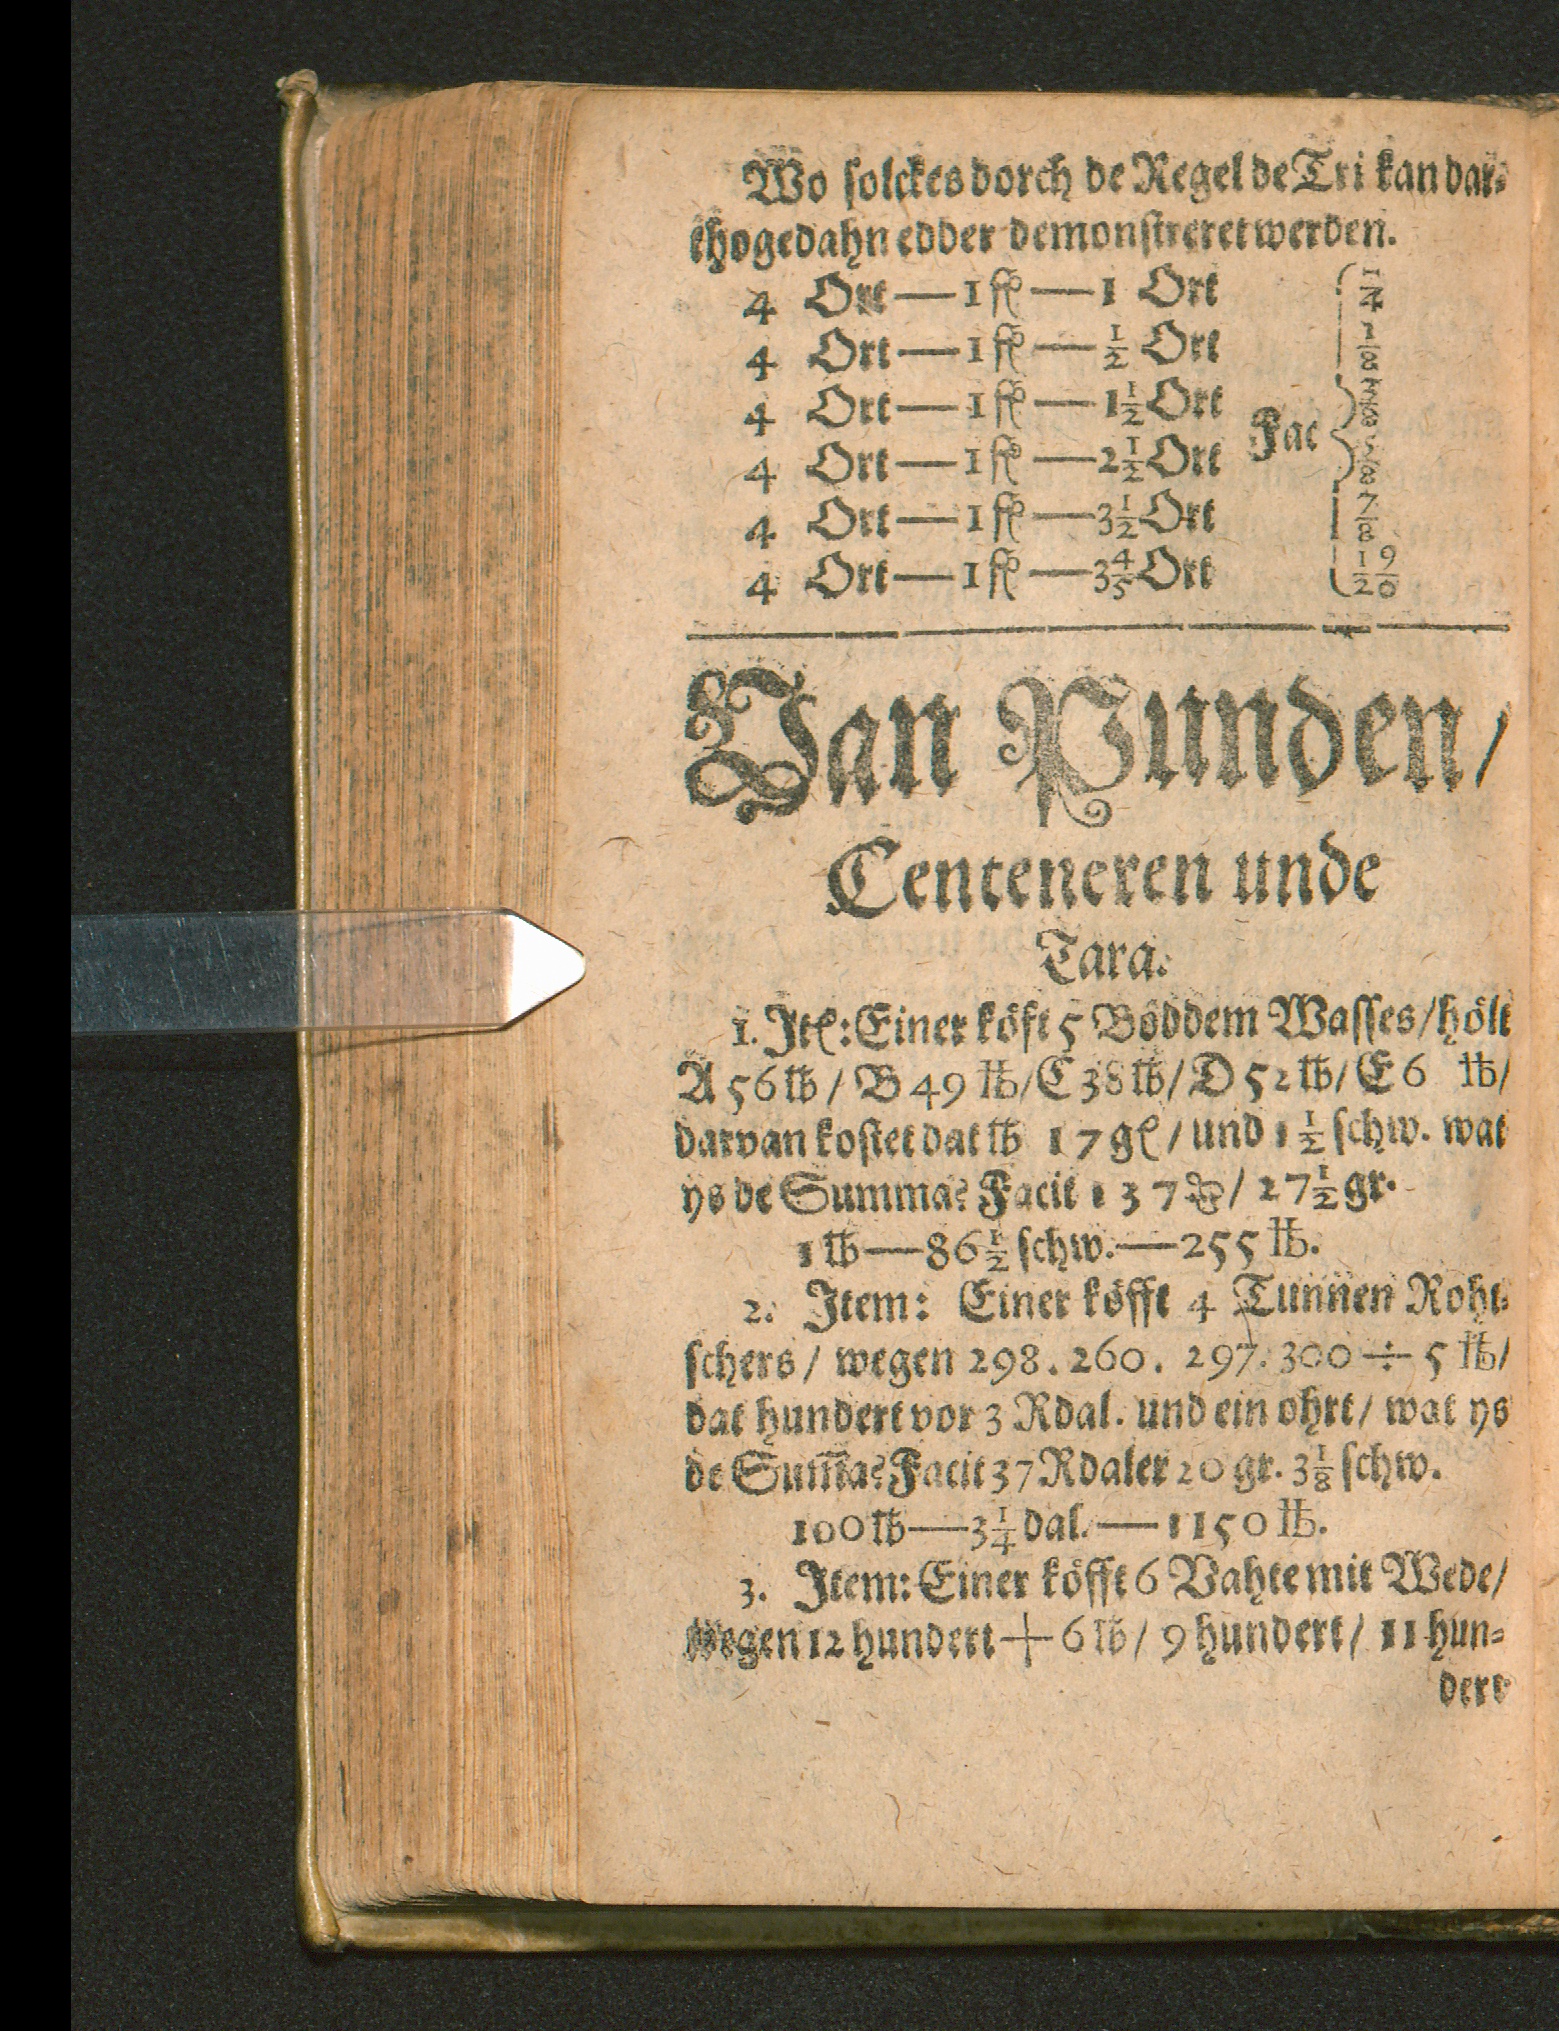 Wo solckes dorch de Regel de Tri kan dar-
thogedahn edder demonstreret werden.
4 Ort—1 fl—1 Ort 1/4
4 Ort—1 fl—1/2 Ort 1/8
4 Ort—1 fl—1 1/2 Ort 3/8
Fac
4 Ort—1 fl—2 1/2 Ort 5/8
4 Ort—1 fl—3 1/2 Ort 7/8
4 Ort—1 fl—3 4/5 Ort 19/20
Van Punden/
Centeneren unde
Tara.
1. Itē: Einer köft 5 Böddem Wasses/ hölt
A 56 ℔/ B 49 ℔/ C 38 ℔/ D 52 ℔/ E 6 ℔/
darvan kostet dat ℔ 17 gl/ und 1 1/2 schw. wat
ys de Summa? Facit 137 / 27 1/2 gr.
1 ℔—86 1/2 schw.—255 ℔.
2. Item: Einer köfft 4 Tunnen Roht-
schers/ wegen 298. 260. 297. 300 ÷ 5 ℔/
dat hundert vor 3 Rdal. und ein ohrt/ wat ys
de Sum̄a? Facit 37 Rdaler 20 gr. 3 1/8 schw.
100 ℔—3 1/4 dal.—1150 ℔.
3. Item: Einer köfft 6 Vahte mit Wede/
wegen 12 hundert + 6 ℔/ 9 hundert/ 11 hun-
dert